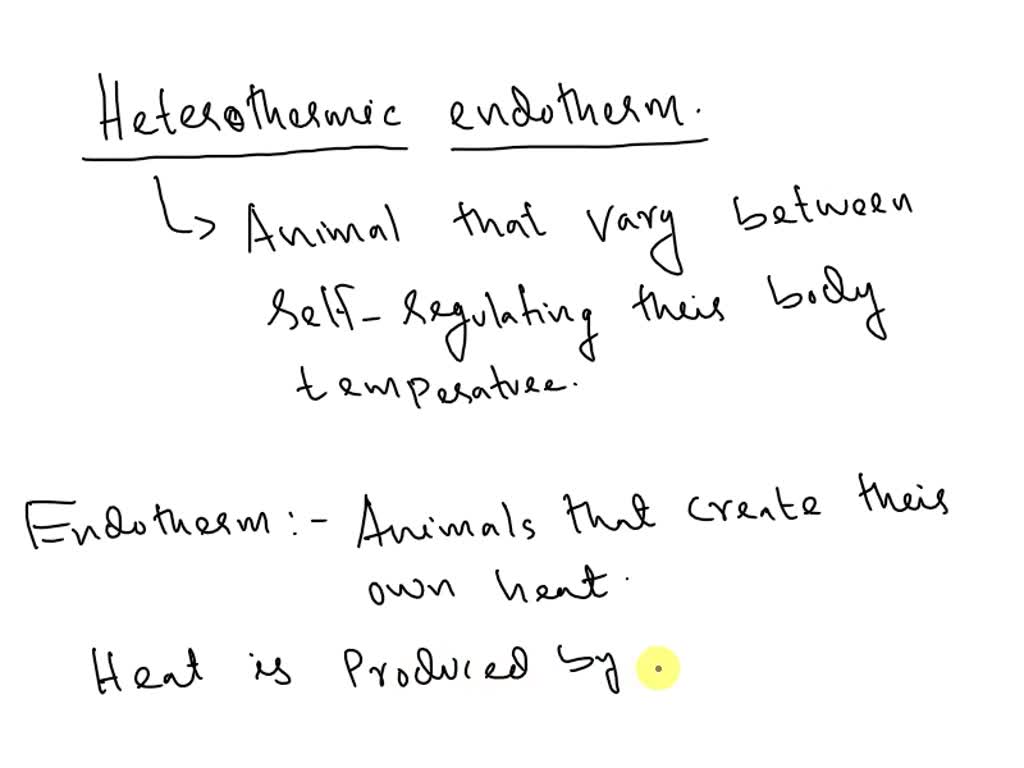 Heterothermic endotherm.
↳ Animal that vary between
self-regulating their body
temperature.
Endotherm :- Animals that create their
own heat.
Heat is Produced by